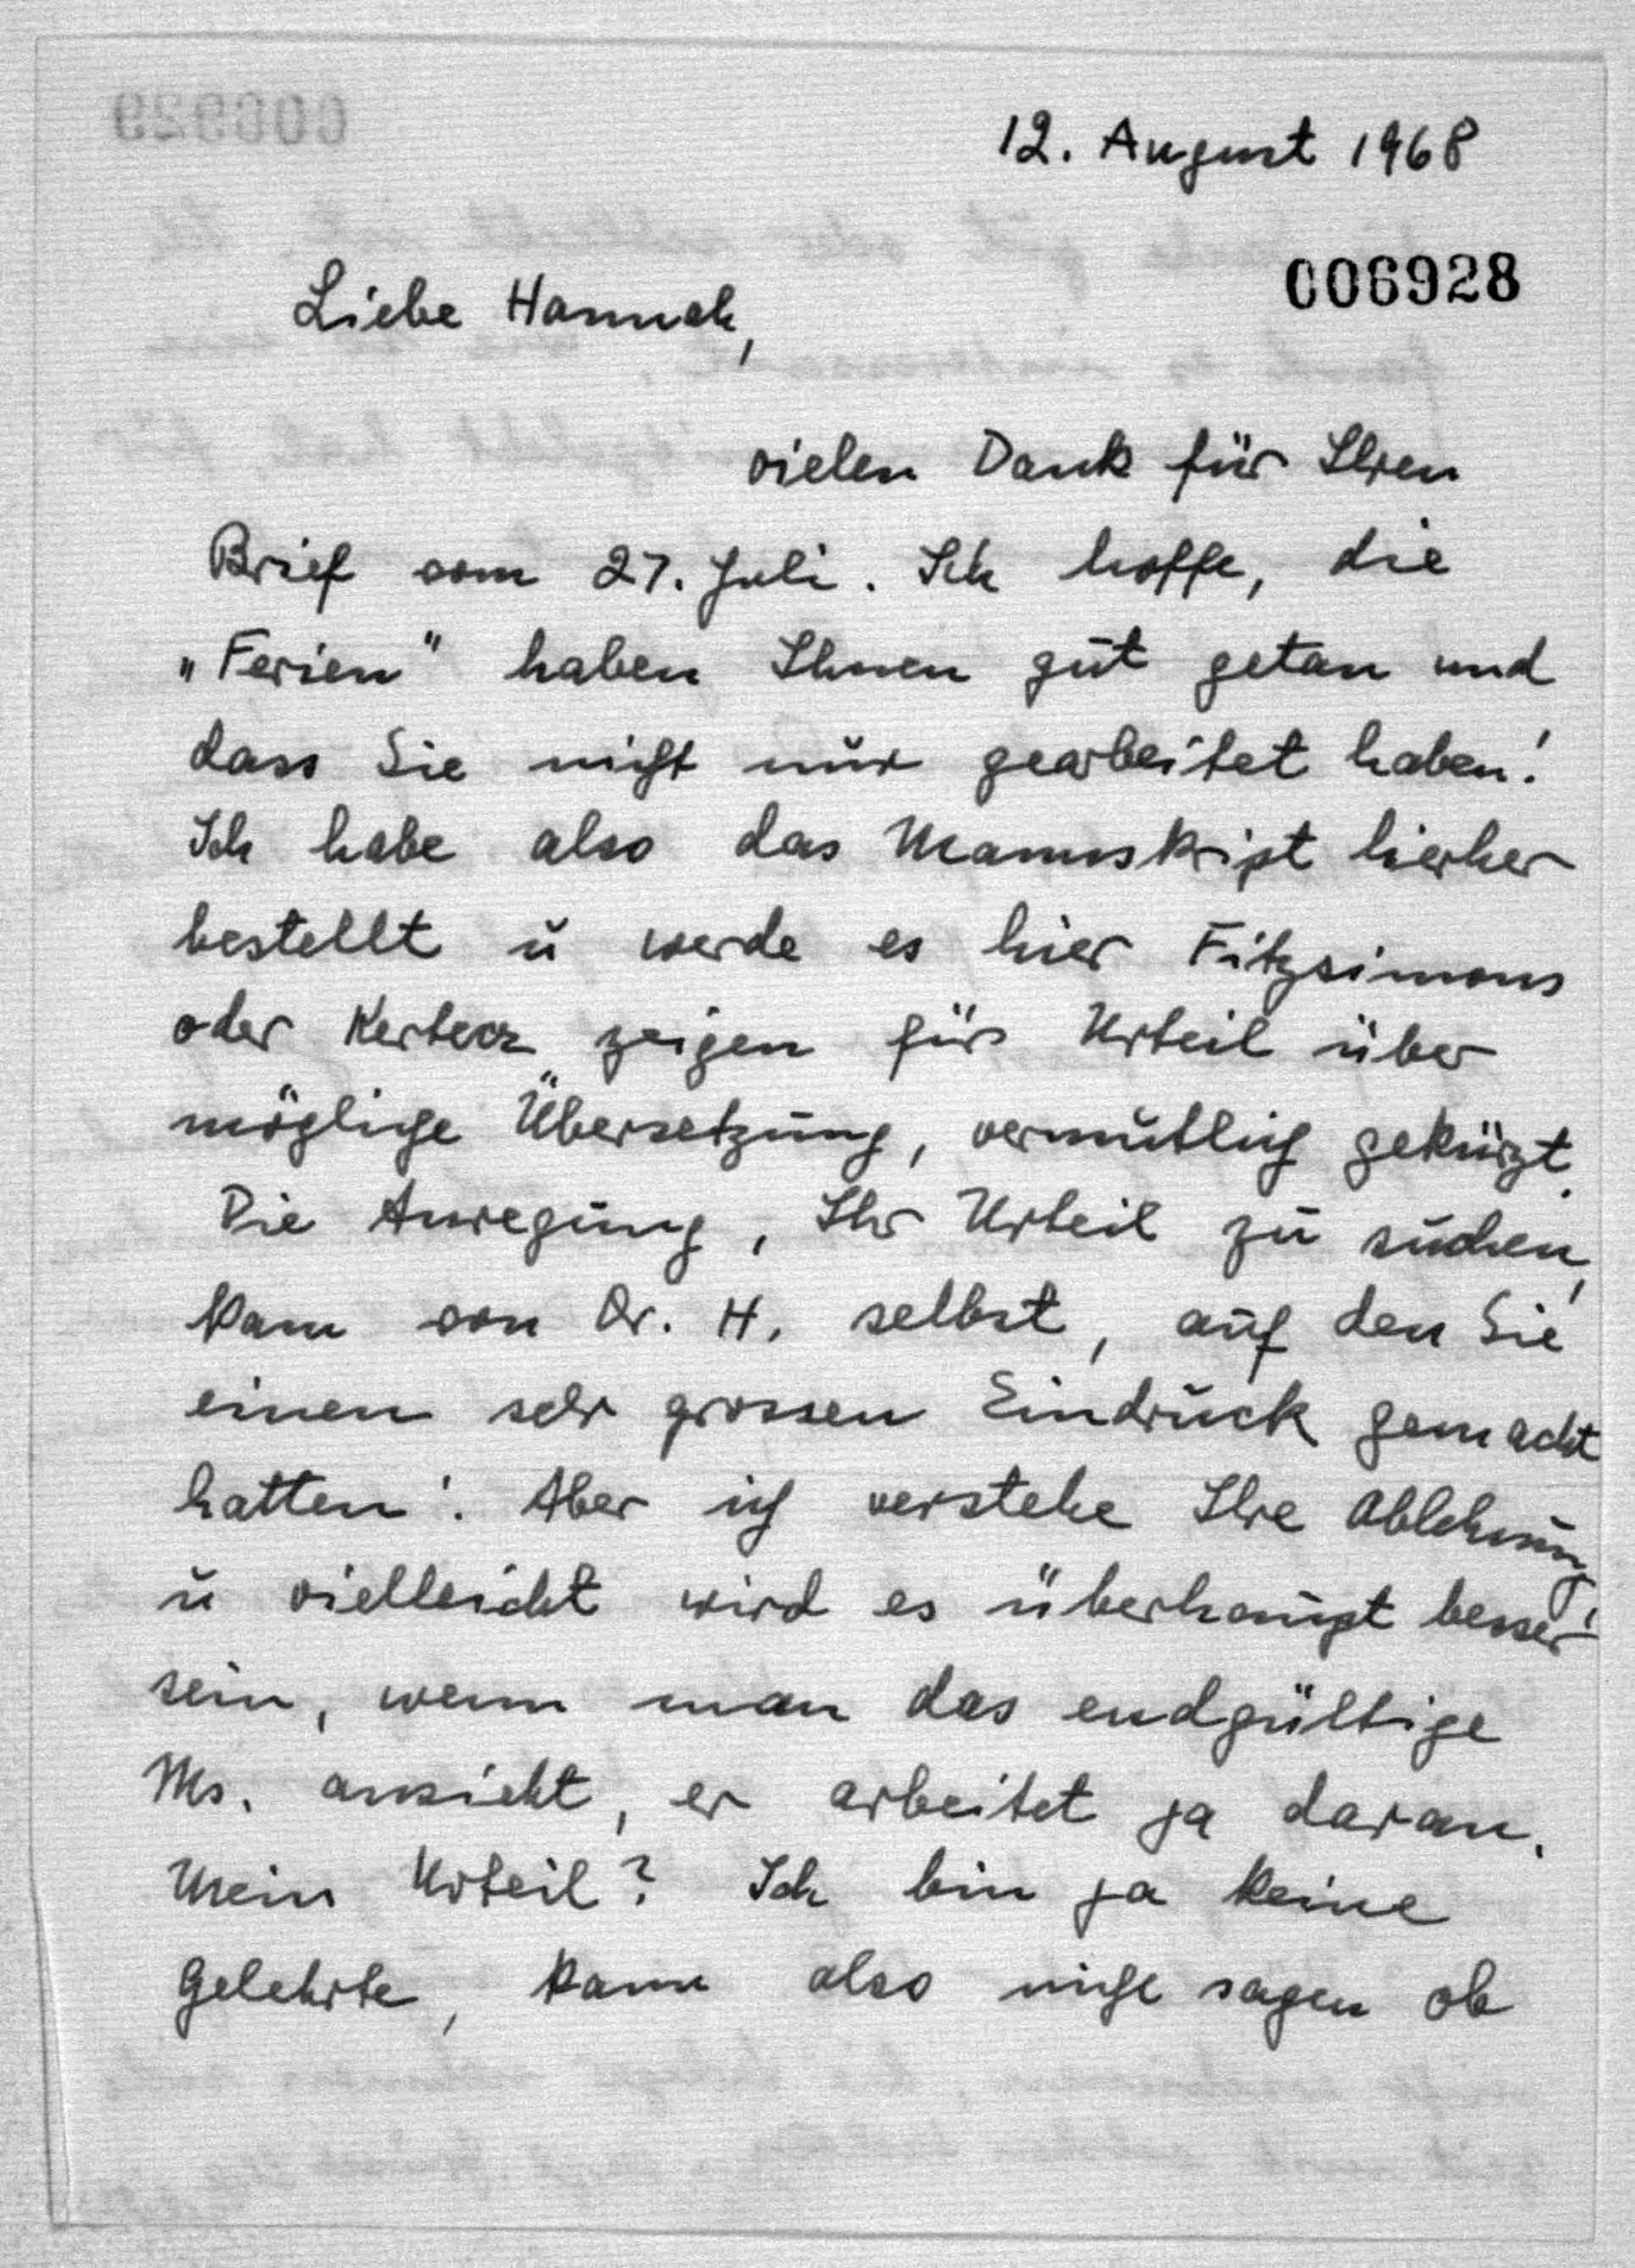 12. August 1968
006928
Liebe Hannah,
vielen Dank für Ihren
Brief vom 27. Juli. Ich hoffe, die
„Ferien" haben Ihnen gut getan und
dass Sie nicht nur gearbeitet haben!
Ich habe also das Manuskript hierher
bestellt u werde es hier Fitzsimons
oder Kertesz zeigen für Urteil über
mögliche Übersetzung, vermutlich gekürzt.
Die Anregung, Ihr Urteil zu suchen,
kam von Dr. H. selbst, auf den Sie
einen sehr grossen Eindruck gemacht
hatten! Aber ich verstehe Ihre Ablehnung,
u vielleicht wird es überhaupt besser
sein, wenn man das endgültige
Ms. ansieht, er arbeitet ja daran.
Mein Urteil? Ich bin ja keine
Gelehrte, kann also nicht sagen ob